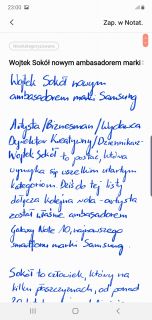 23:00
Zap. w Notat.
Niesklasyfikowane
Wojtek Sokół nowym ambasadorem marki
Wojtek Sokół nowym
ambasadorem marki Samsung
Artysta/Biznesman/Wydawca
Dyrektor Kreatywny/Dziennikarz-
Wojtek Sokół to postać, która
wymyka się wszelkim utartym
kategoriom. Dziś do tej listy
dołącza kolejna rola - artysta
został właśnie ambasadorem
Galaxy Note 10, najnowszego
smartfonu marki Samsung.
Sokół to człowiek, który na
kilku płaszczyznach, od ponad